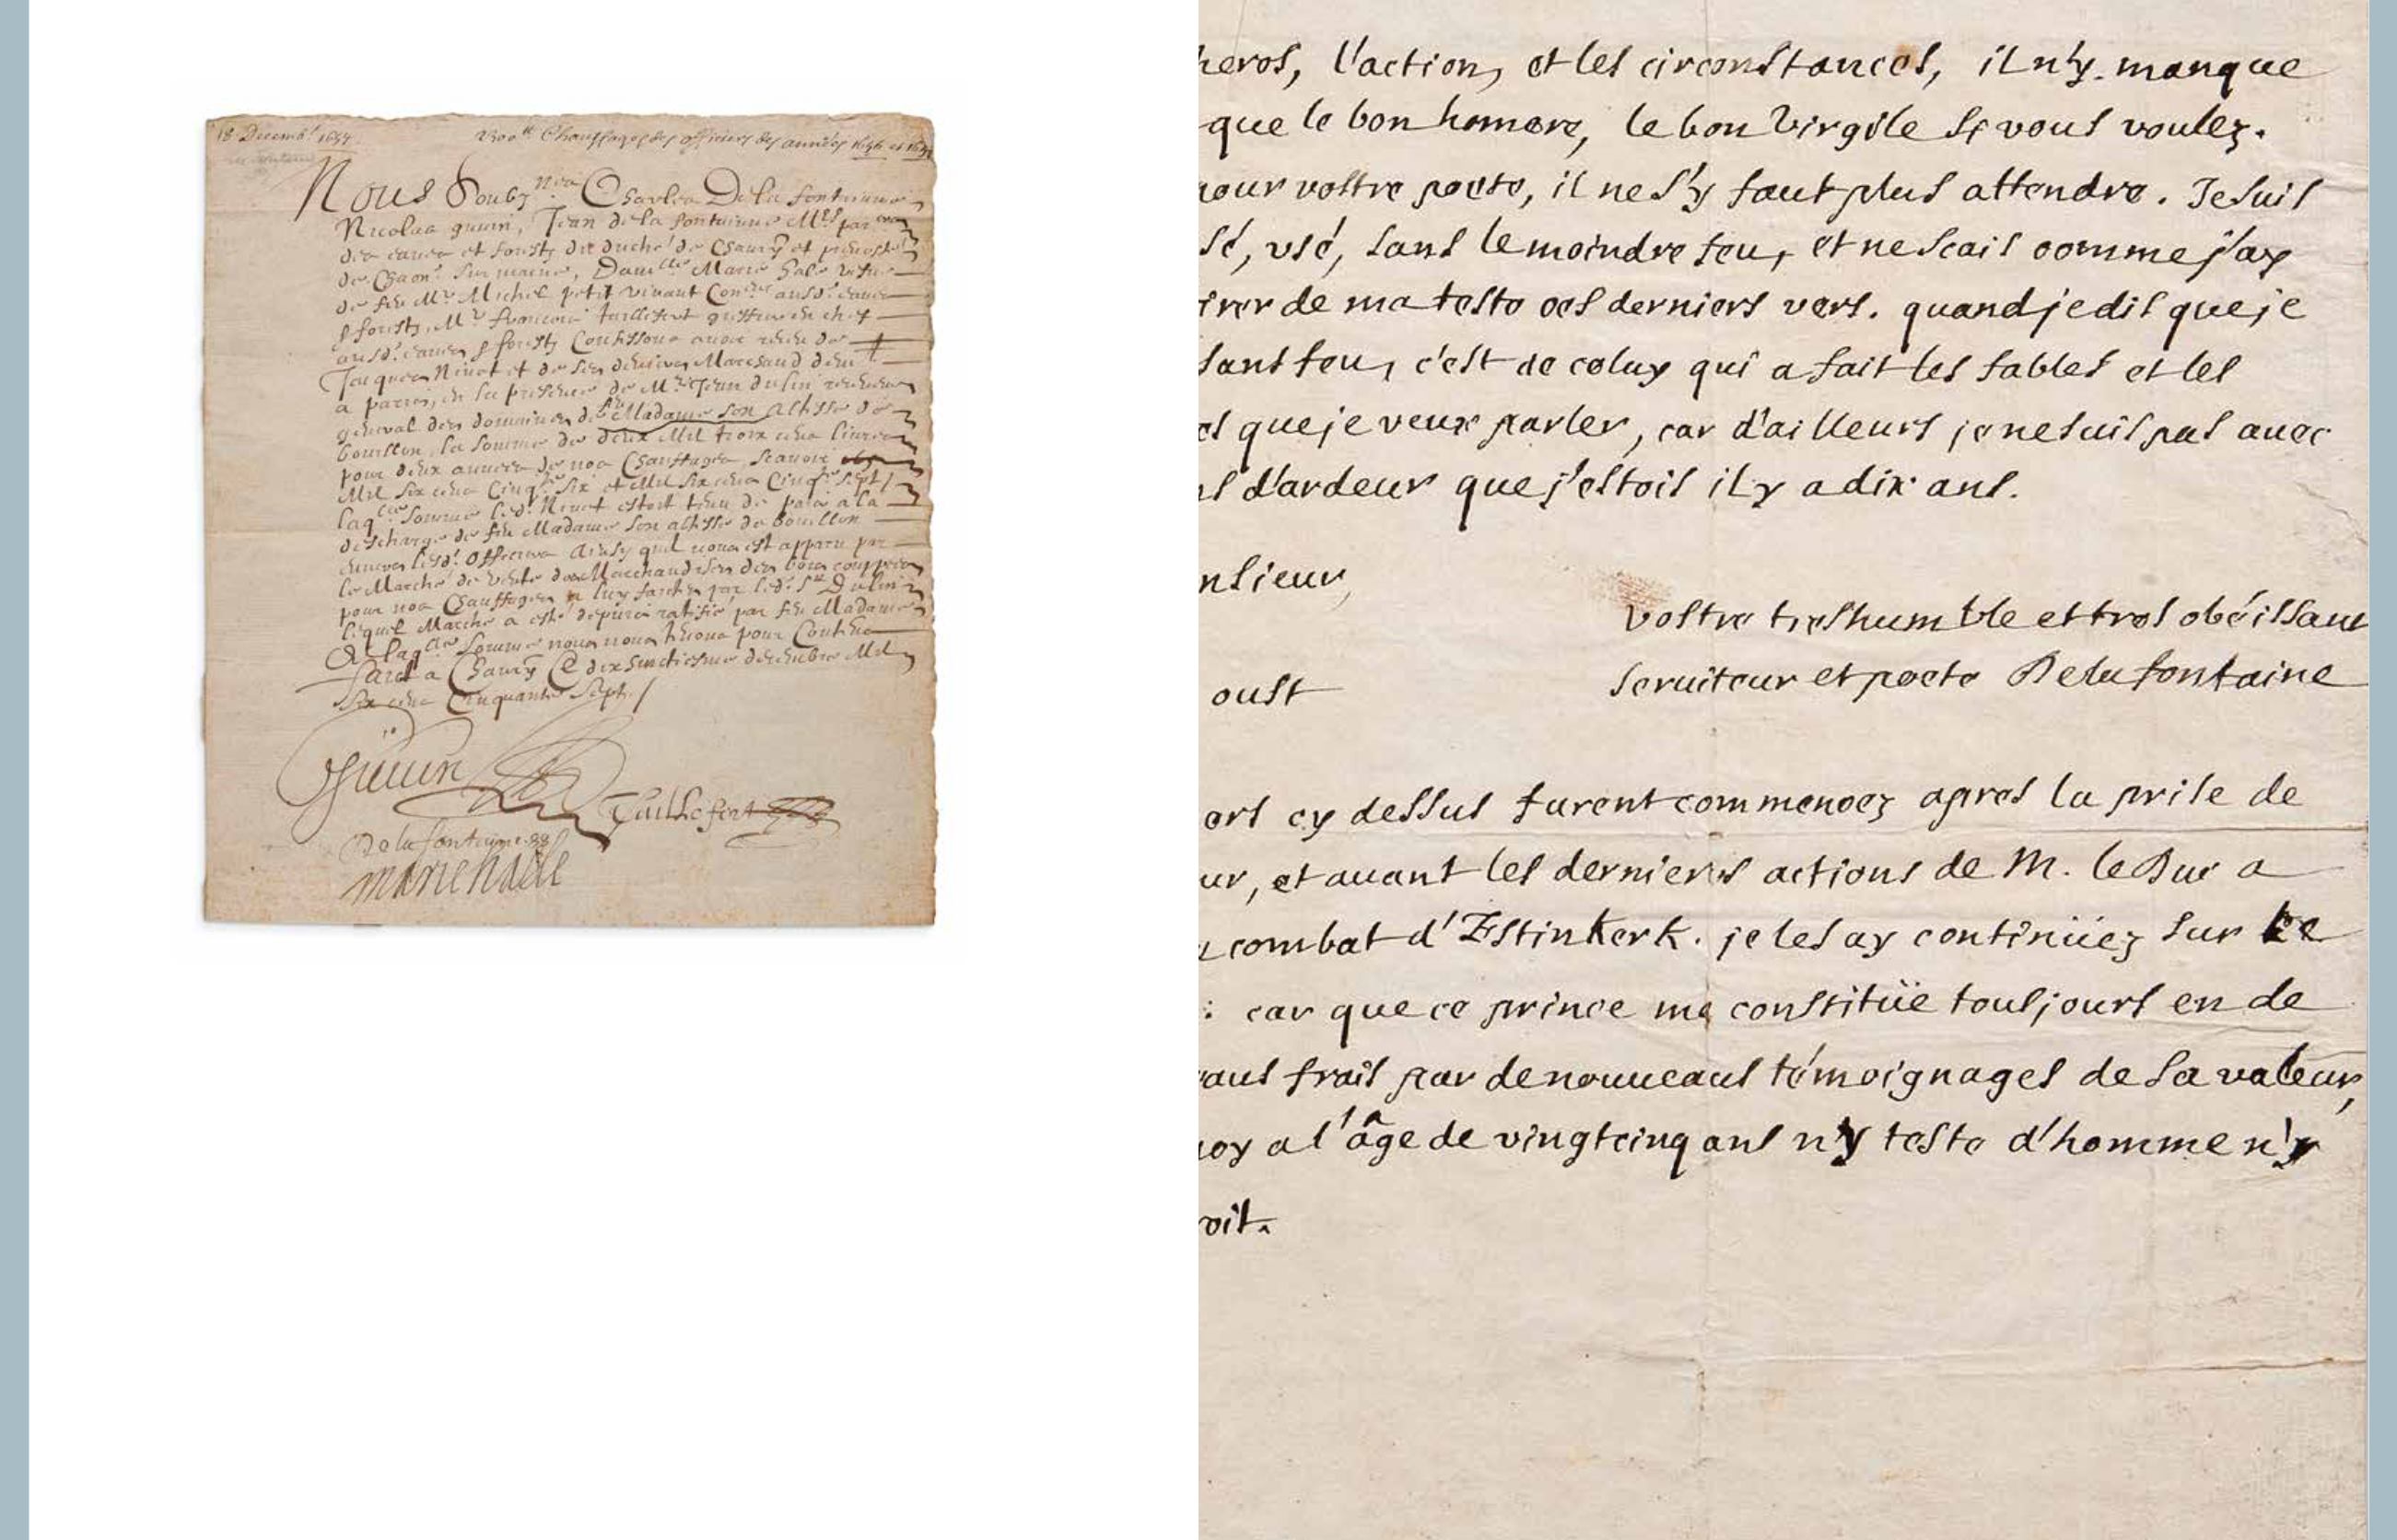 18 Decemb.^r 1657
2300^tt Chauffages des officiers des années 1656 et 1657
Nous Soubz^nez Charles De la fontainne
Nicolas guvin, Jean de la fontainne M^es par^ers
des eaues et forests du duché de Chaury et preuosté
de Chaon. sur marne, Dam^lle Marie hale vefue
de feu M^e Michel petit viuant Con^er ausd. eaues
& forests, M^e francois taillefert greffier en chef
ausd. eaues & forests Confessons auoir receu de
Jacques Ninot et de ses deniers Marchand demt
a paris, en la presence de M^e Jean dulin receueur
general des domaines de feu Madame son Altesse de
bouillon, la somme de deux Mil trois cens liures
pour deux annees de nos Chauffages, scauoir
Mil six cens Cinq^te six et Mil six cens Cinq^te sept /
laq^lle somme led. Ninot estoit tenu de paier a la
descharge de feu Madame son altesse de bouillon
enuers lesd. Officiers Ainsy quil nous est apparu par
le Marché de vente des Marchandises des bois couppees
pour nos Chauffages a luy faict par led. S^r Dulin
lequel Marché a esté depuis ratifié par feu Madame
De laq^lle somme nous nous tenons pour Contens
faict a Chaury Ce dix septiesme decembre Mil
six cens Cinquante sept. /
Guvin
Taillefert
De la fontainne
marie hale
heros, l'action, et les circonstances, il n'y manque
que le bon homere, le bon Virgile si vous voulez.
pour vostre poete, il ne s'y faut plus attendre. Je suis
sé, vsé, sans le moindre feu, et ne scais comme j'ay
irer de ma teste ces derniers vers. quand je dis que je
sans feu, c'est de celuy qui a fait les fables et les
es que je veux parler, car d'ailleurs je ne suis pas auec
s d'ardeur que j'estois il y a dix ans.
nsieur,
vostre tres humble et tres obéissant
oust
seruiteur et poete De la fontaine
ers cy dessus furent commencez apres la prise de
ur, et auant les dernieres actions de M. le Duc a
combat d'Estinkerk. je les ay continüez sur ce
: car que ce prince me constitüe tousjours en de
eaus frais par de nouueaus témoignages de sa valeur,
oy a l'âge de vingt cinq ans n'y teste d'homme n'y
oit.